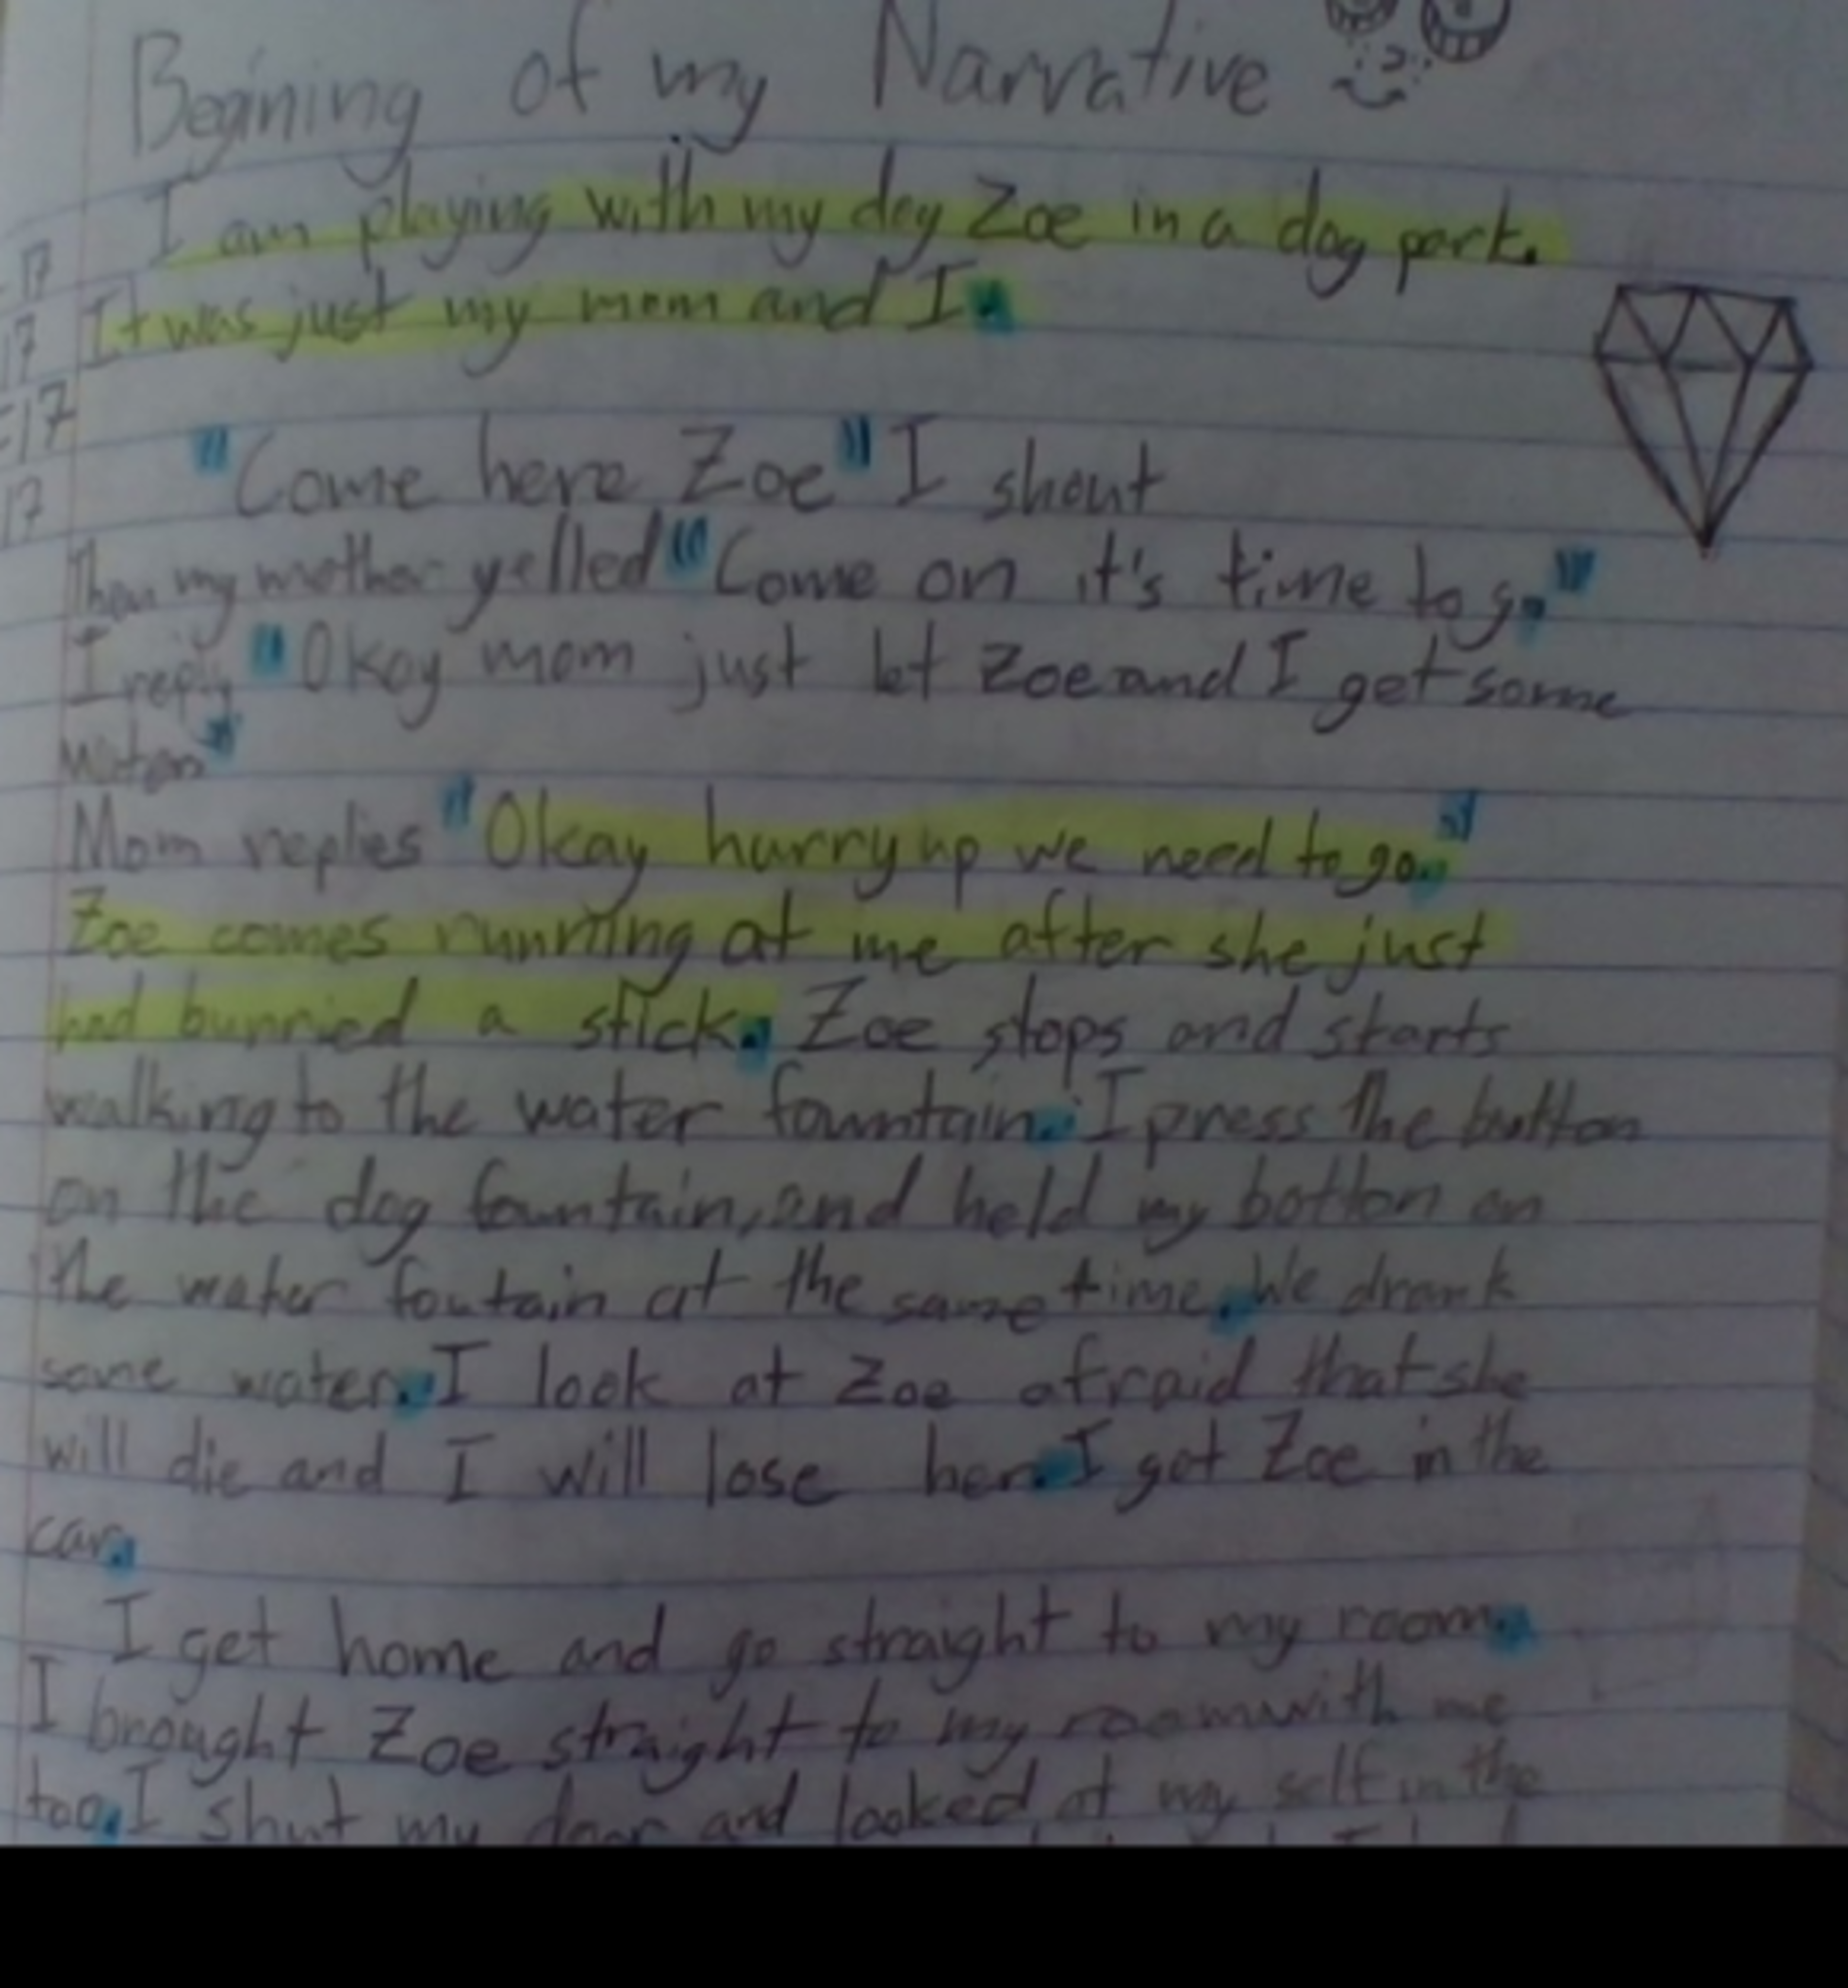 Begining of my Narrative
I am playing with my dog Zoe in a dog park.
It was just my mom and I.
17
17
17
17
"Come here Zoe" I shout
Then my mother yelled "Come on it's time to go."
I reply "Okay mom just let Zoe and I get some
water"
Mom replies "Okay hurry up we need to go."
Zoe comes running at me after she just
had burried a stick. Zoe stops and starts
walking to the water fountain. I press the button
on the dog fountain, and held my botton on
the water foutain at the same time. We drank
some water. I look at Zoe afraid that she
will die and I will lose her. I get Zoe in the
car.
I get home and go straight to my room.
I brought Zoe straight to my room with me
too. I shut my door and looked at my self in the